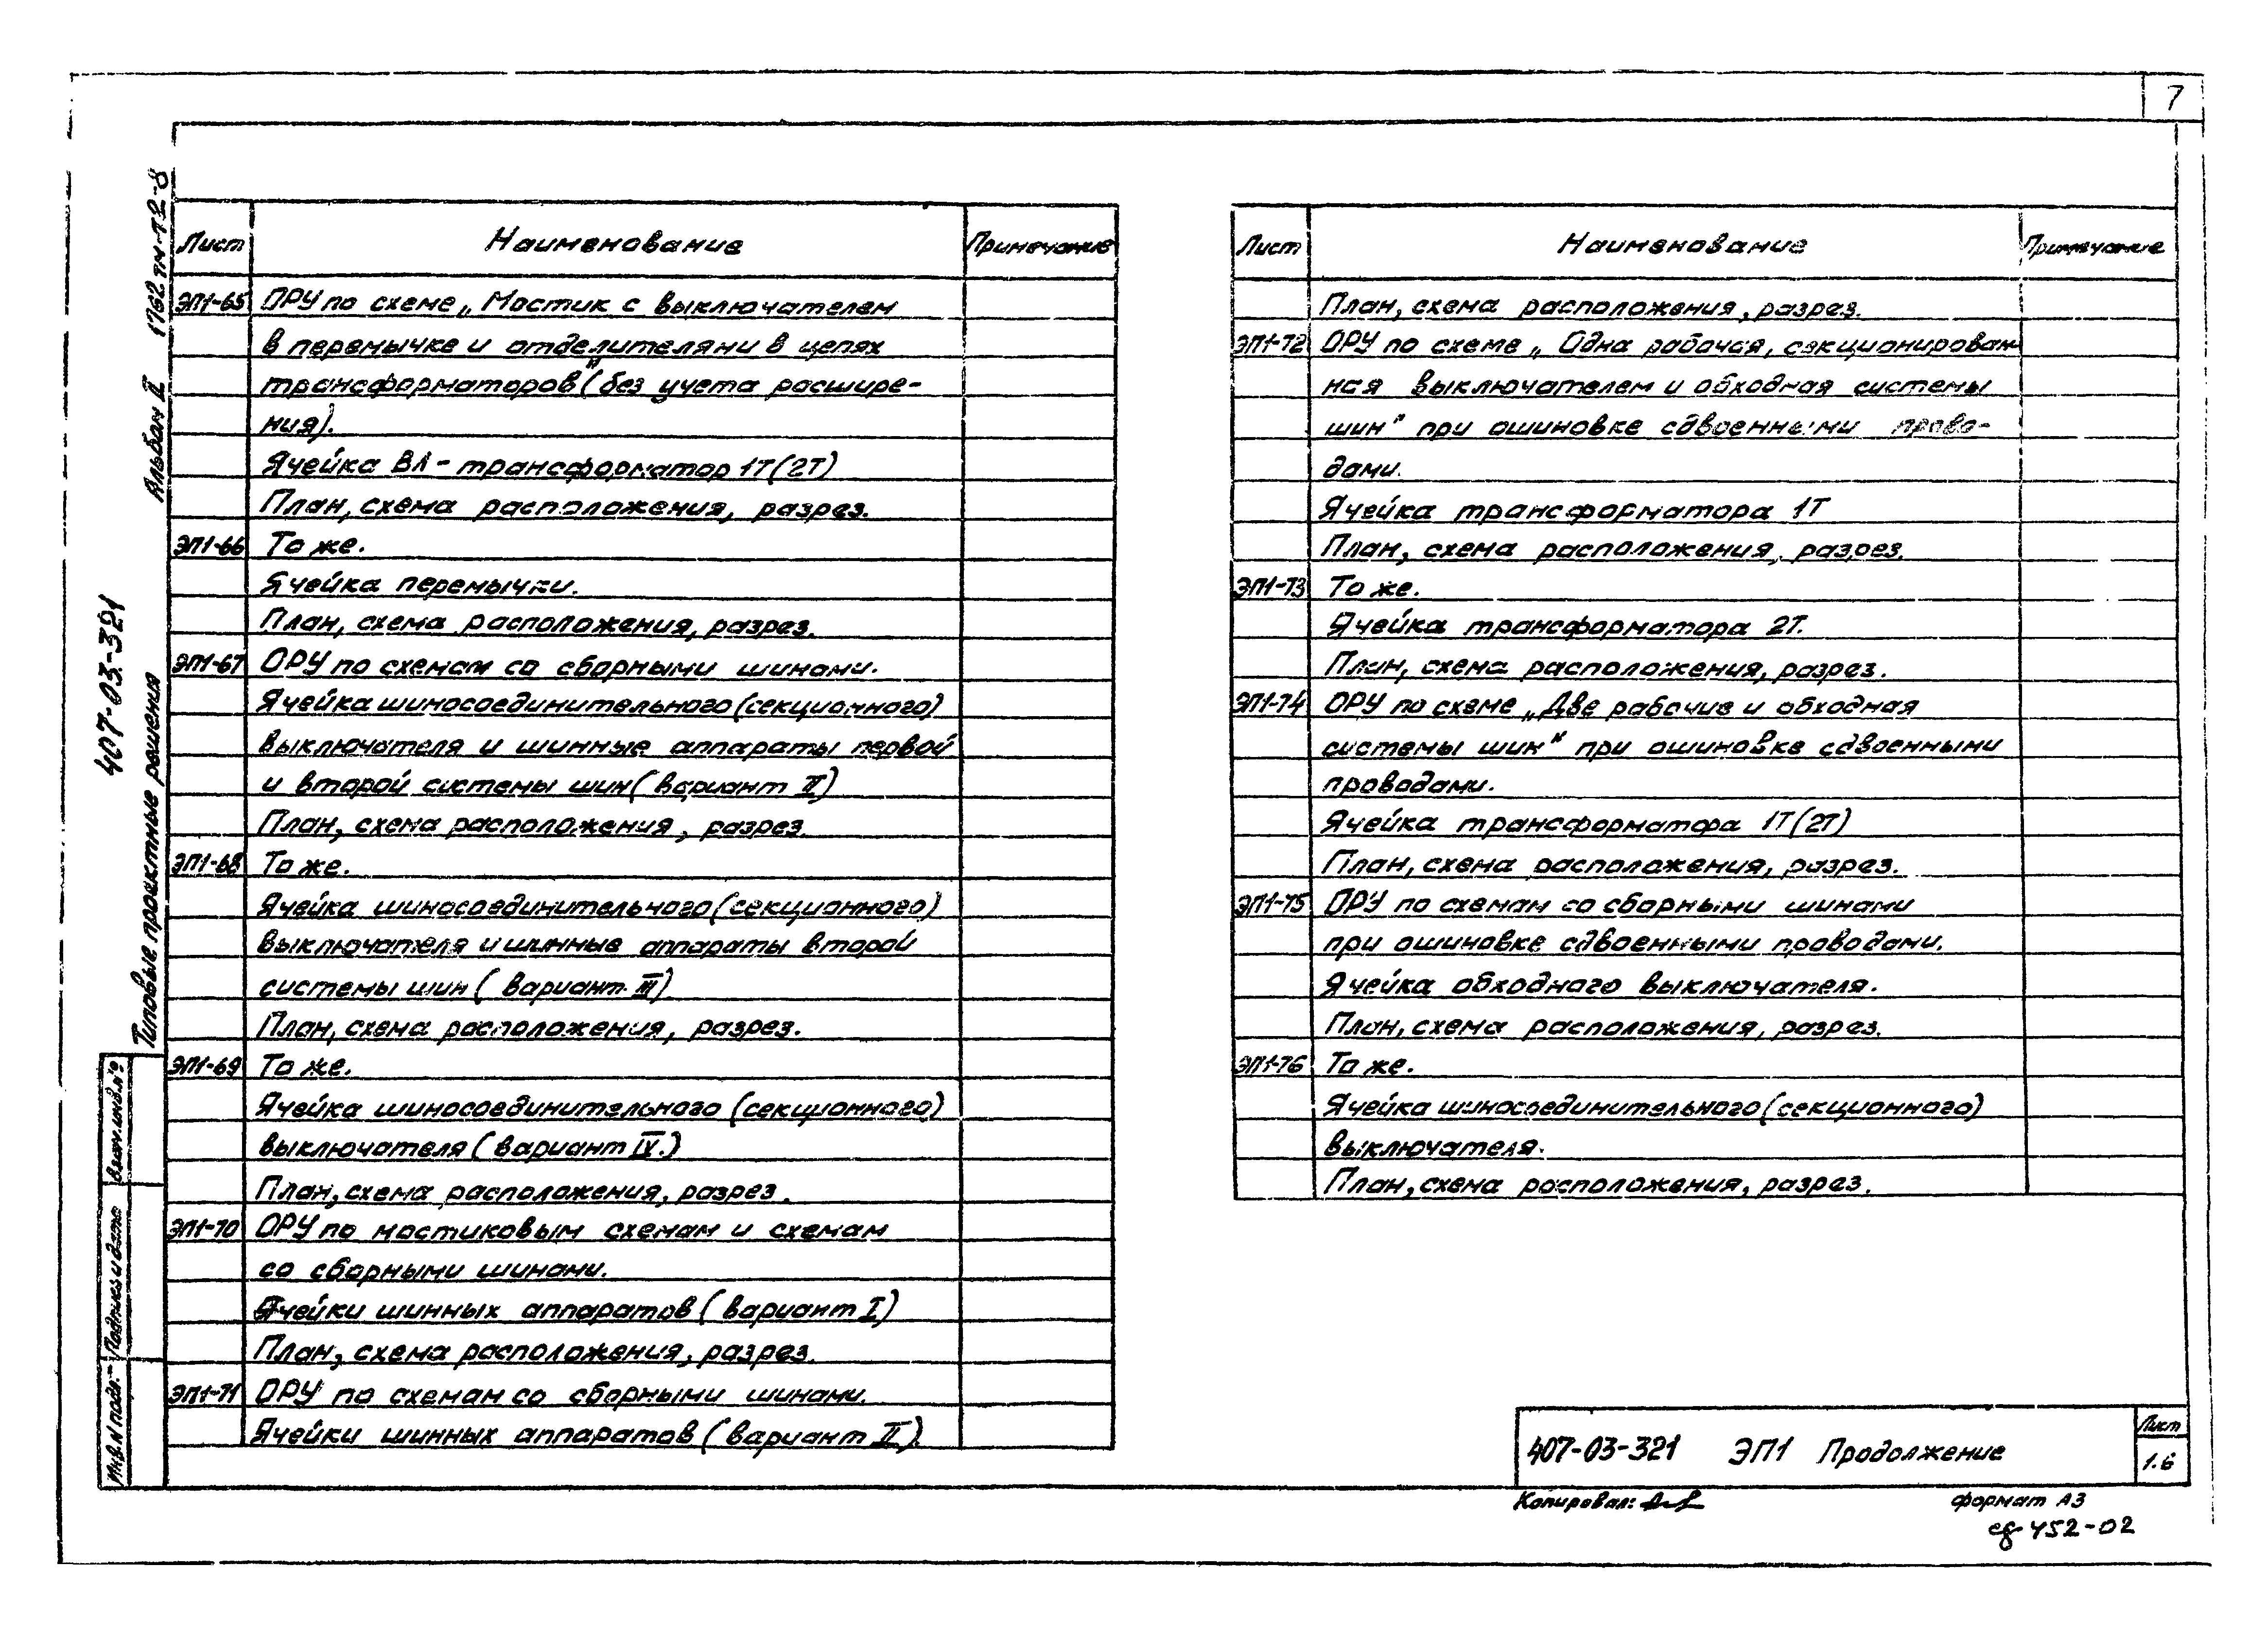 7
Лист Наименование Примечание
ЭП1-65 ОРУ по схеме „Мостик с выключателем
в перемычке и отделителями в цепях
трансформаторов" (без учета расшире-
ния).
Ячейка ВЛ - трансформатор 1Т(2Т)
План, схема расположения, разрез.
ЭП1-66 То же.
Ячейка перемычки.
План, схема расположения, разрез.
ЭП1-67 ОРУ по схемам со сборными шинами.
Ячейка шиносоединительного (секционного)
выключателя и шинные аппараты первой
и второй системы шин (вариант II)
План, схема расположения, разрез.
ЭП1-68 То же.
Ячейка шиносоединительного (секционного)
выключателя и шинные аппараты второй
системы шин (вариант III)
План, схема расположения, разрез.
ЭП1-69 То же.
Ячейка шиносоединительного (секционного)
выключателя (вариант IV.)
План, схема расположения, разрез.
ЭП1-70 ОРУ по мостиковым схемам и схемам
со сборными шинами.
Ячейки шинных аппаратов (вариант I)
План, схема расположения, разрез.
ЭП1-71 ОРУ по схемам со сборными шинами.
Ячейки шинных аппаратов (вариант II).
Лист Наименование Примечание
План, схема расположения, разрез.
ЭП1-72 ОРУ по схеме „Одна рабочая, секционирован
ная выключателем и обходная системы
шин" при ошиновке сдвоенными прово-
дами.
Ячейка трансформатора 1Т
План, схема расположения, разрез.
ЭП1-73 То же.
Ячейка трансформатора 2Т.
План, схема расположения, разрез.
ЭП1-74 ОРУ по схеме „Две рабочие и обходная
системы шин" при ошиновке сдвоенными
проводами.
Ячейка трансформатора 1Т(2Т)
План, схема расположения, разрез.
ЭП1-75 ОРУ по схемам со сборными шинами
при ошиновке сдвоенными проводами.
Ячейка обходного выключателя.
План, схема расположения, разрез.
ЭП1-76 То же.
Ячейка шиносоединительного (секционного)
выключателя.
План, схема расположения, разрез.
407-03-321 ЭП1 Продолжение
Лист
1.6
Копировал:
формат А3
452-02
407-03-321
Типовые проектные решения Альбом II 1762тм-т2-8
Инв.N подл. Подпись и дата Взам.инв.№